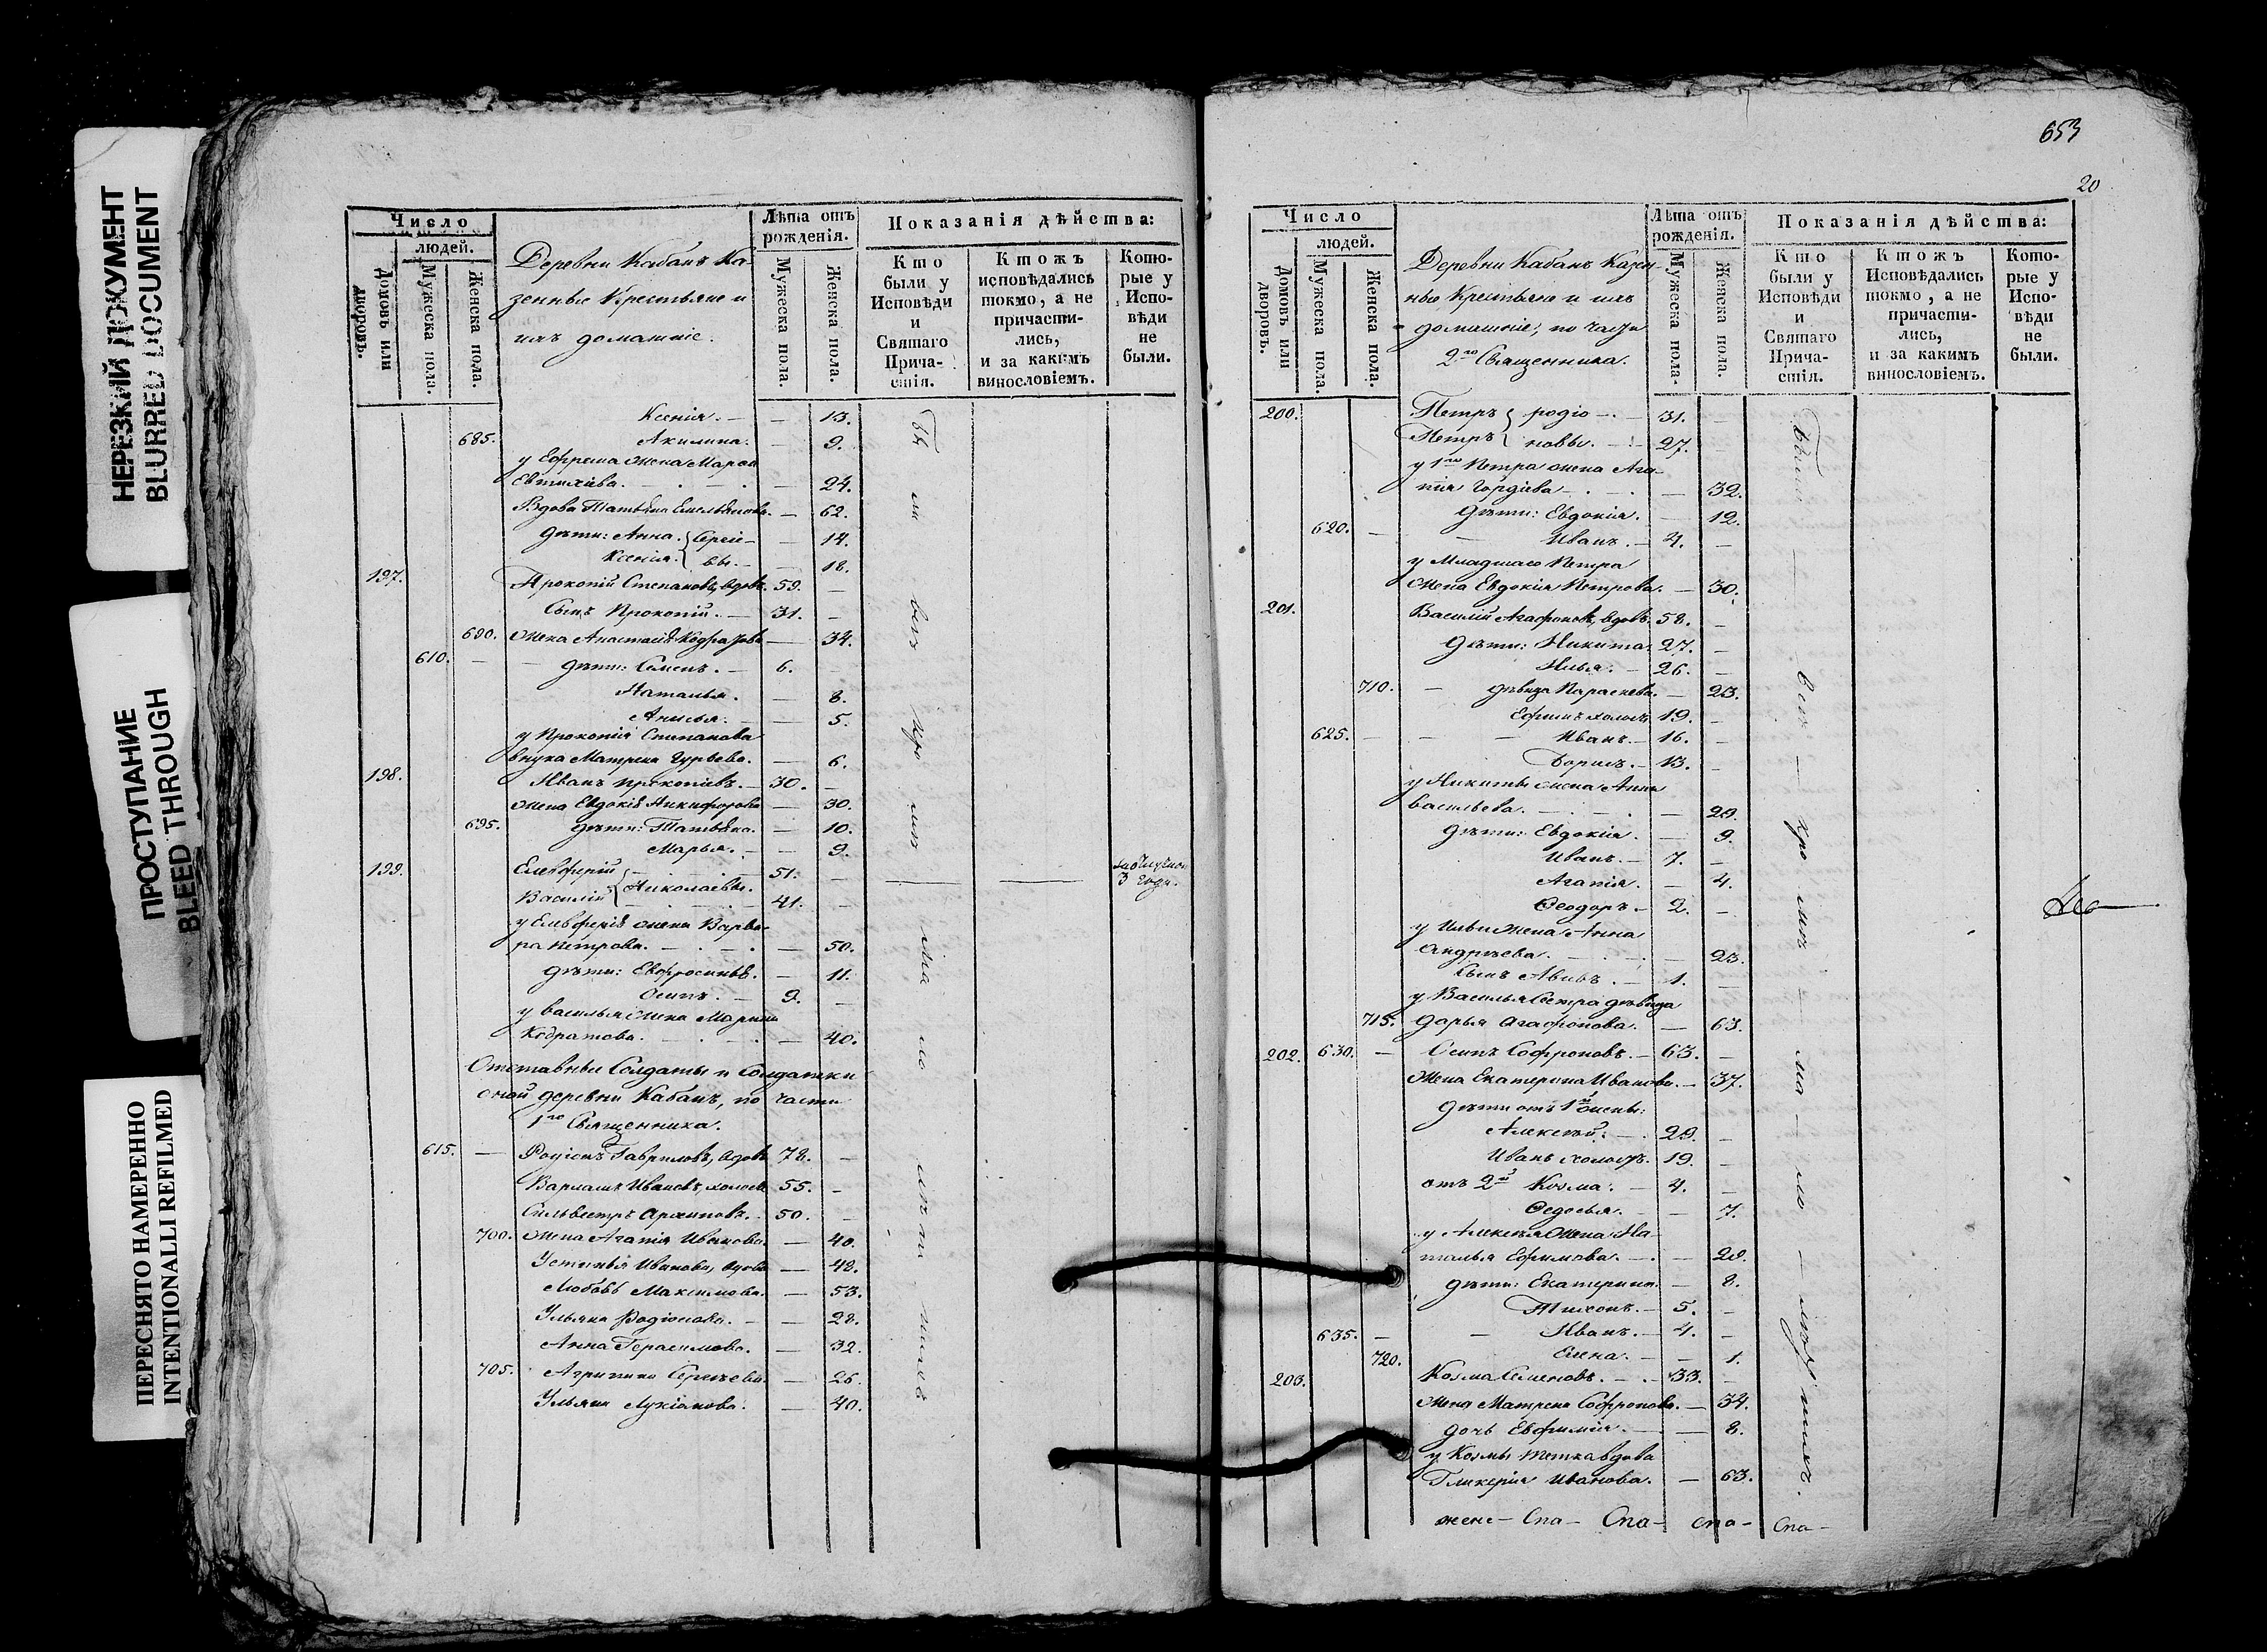 НЕРЕЗКИЙ ДОКУМЕНТ
BLURRED DOCUMENT
ПРОСТУПАНИЕ
BLEED THROUGH
ПЕРЕСНЯТО НАМЕРЕННО
INTENTIONALLI REFILMED
Число
людей.
Домовъ или дворовъ.
Мужеска пола.
Женска пола.
Деревни Кабанъ Ка-
зенные Крестьяне и
ихъ домашніе.
Лѣта отъ рожденія.
Мужеска пола.
Женска пола.
Показанія дѣйства:
Кто были у Исповѣди и Святаго Прича-стія.
Ктожъ исповѣдались токмо, а не причасти-лись, и за какимъ винословіемъ.
Кото-рые у Испо-вѣди не были.
Ксенія. — — 13.
685. Акилина. — 9.
у Ефрема жена Марѳа
Евтихіева. — — 24.
Вдова Татьяна Емельянова. — 62.
дѣти: Анна. Сергіе- — 14.
Ксенія. вы. — — 18.
197. Прокопій Степановъ, вдовъ. 59. —
Сынъ Прокопій. — 31. —
690. Жена Анастасія — 34.
610. — — дѣти: Семенъ. — 6.
Наталья. — 8.
Анисья. — — 5.
у Прокопія Степанова
внука Матрена Гурьева. — 6.
198. Иванъ Прокопіевъ. — 30. —
Жена Евдокія Никифорова — 30.
695. дѣти: Татьяна. — 10.
Марья. — — 9.
199. Елевферій — 51. —
Василій Николаевы. 41. —
3 года.
у Елевферія жена Варва-
ра Петрова. — — 50.
дѣти: Евфросинья. — 11.
Осипъ. — 9. —
у Василья жена Марина
Кодратова. — — 40.
Отставные Солдаты и Солдатки
оной деревни Кабанъ, по части
1го Священника.
615. — Родіонъ Гавриловъ, вдовъ 78. —
Варлаамъ Ивановъ, холостъ 55. —
Сильвестръ Архиповъ. 50. —
700. Жена Агапія Иванова. — 40.
Устинья Иванова, вдова — 48.
Любовь Максимова. — 53.
Ульяна Родіонова. — — 28.
Анна Герасимова. — 32.
705. Агрипина Сергѣева. — 26.
Ульяна Лукіанова. — 40.
653
20
Число
людей.
Домовъ или дворовъ.
Мужеска пола.
Женска пола.
Деревни Кабанъ Казен-
ные Крестьяне и ихъ
домашніе, по части
2го Священника.
Лѣта отъ рожденія.
Мужеска пола.
Женска пола.
Показанія дѣйства:
Кто были у Исповѣди и Святаго Прича-стія.
Ктожъ Исповѣдались токмо, а не причасти-лись, и за какимъ винословіемъ.
Кото-рые у Испо-вѣди не были.
200. Петръ родіо — 31. —
Петръ новы. — 27. —
у 1го Петра жена Ага-
пія Гордіева — — 32.
дѣти: Евдокія. — 12.
620. — — Иванъ. — 4. —
у Младшаго Петра
Жена Евдокія Петрова. — 30.
201. Василій Агафоновъ, вдовъ. 58. —
дѣти: Никита. 27. —
Илья. — 26. —
710. — дѣвица Параскева. — 23.
Ефимъ холостъ 19. —
625. — — — Иванъ. — 16. —
Борисъ. — 13. —
у Никиты жена Анна
Васильева. — — 29.
дѣти: Евдокія. — 9.
Иванъ. — 7. —
Агапія. — 4.
Ѳеодоръ. — 2. —
у Ильи жена Анна
Андрѣева. — — 23.
Сынъ Авивъ. — 1. —
у Василья Сестра дѣвица
715. Дарья Агафонова. — 63.
202. 630. — Осипъ Софроновъ. — 63. —
Жена Екатерина Иванова. — 37.
дѣти отъ 1й жены:
Алексѣй. — 29. —
Иванъ холостъ. 19. —
отъ 2й Козма. — 4. —
Ѳедосья. — — 7.
у Алексѣя Жена На-
талья Ефимова. — — 29.
дѣти: Екатерина. — 8.
Тихонъ. — 5. —
635. — — Иванъ. — 4. —
720. Елена. — — 1.
203. Козма Семеновъ. — 33. —
Жена Матрена Софронова. — 34.
дочь Евфимія. — — 8.
у Козмы тетка вдова
Гликерія Иванова. — 63.
Бы ли всѣ кро мѣ ма ло лѣт нихъ
Были — всѣ — кро мѣ — ма — ло — лѣт нихъ.